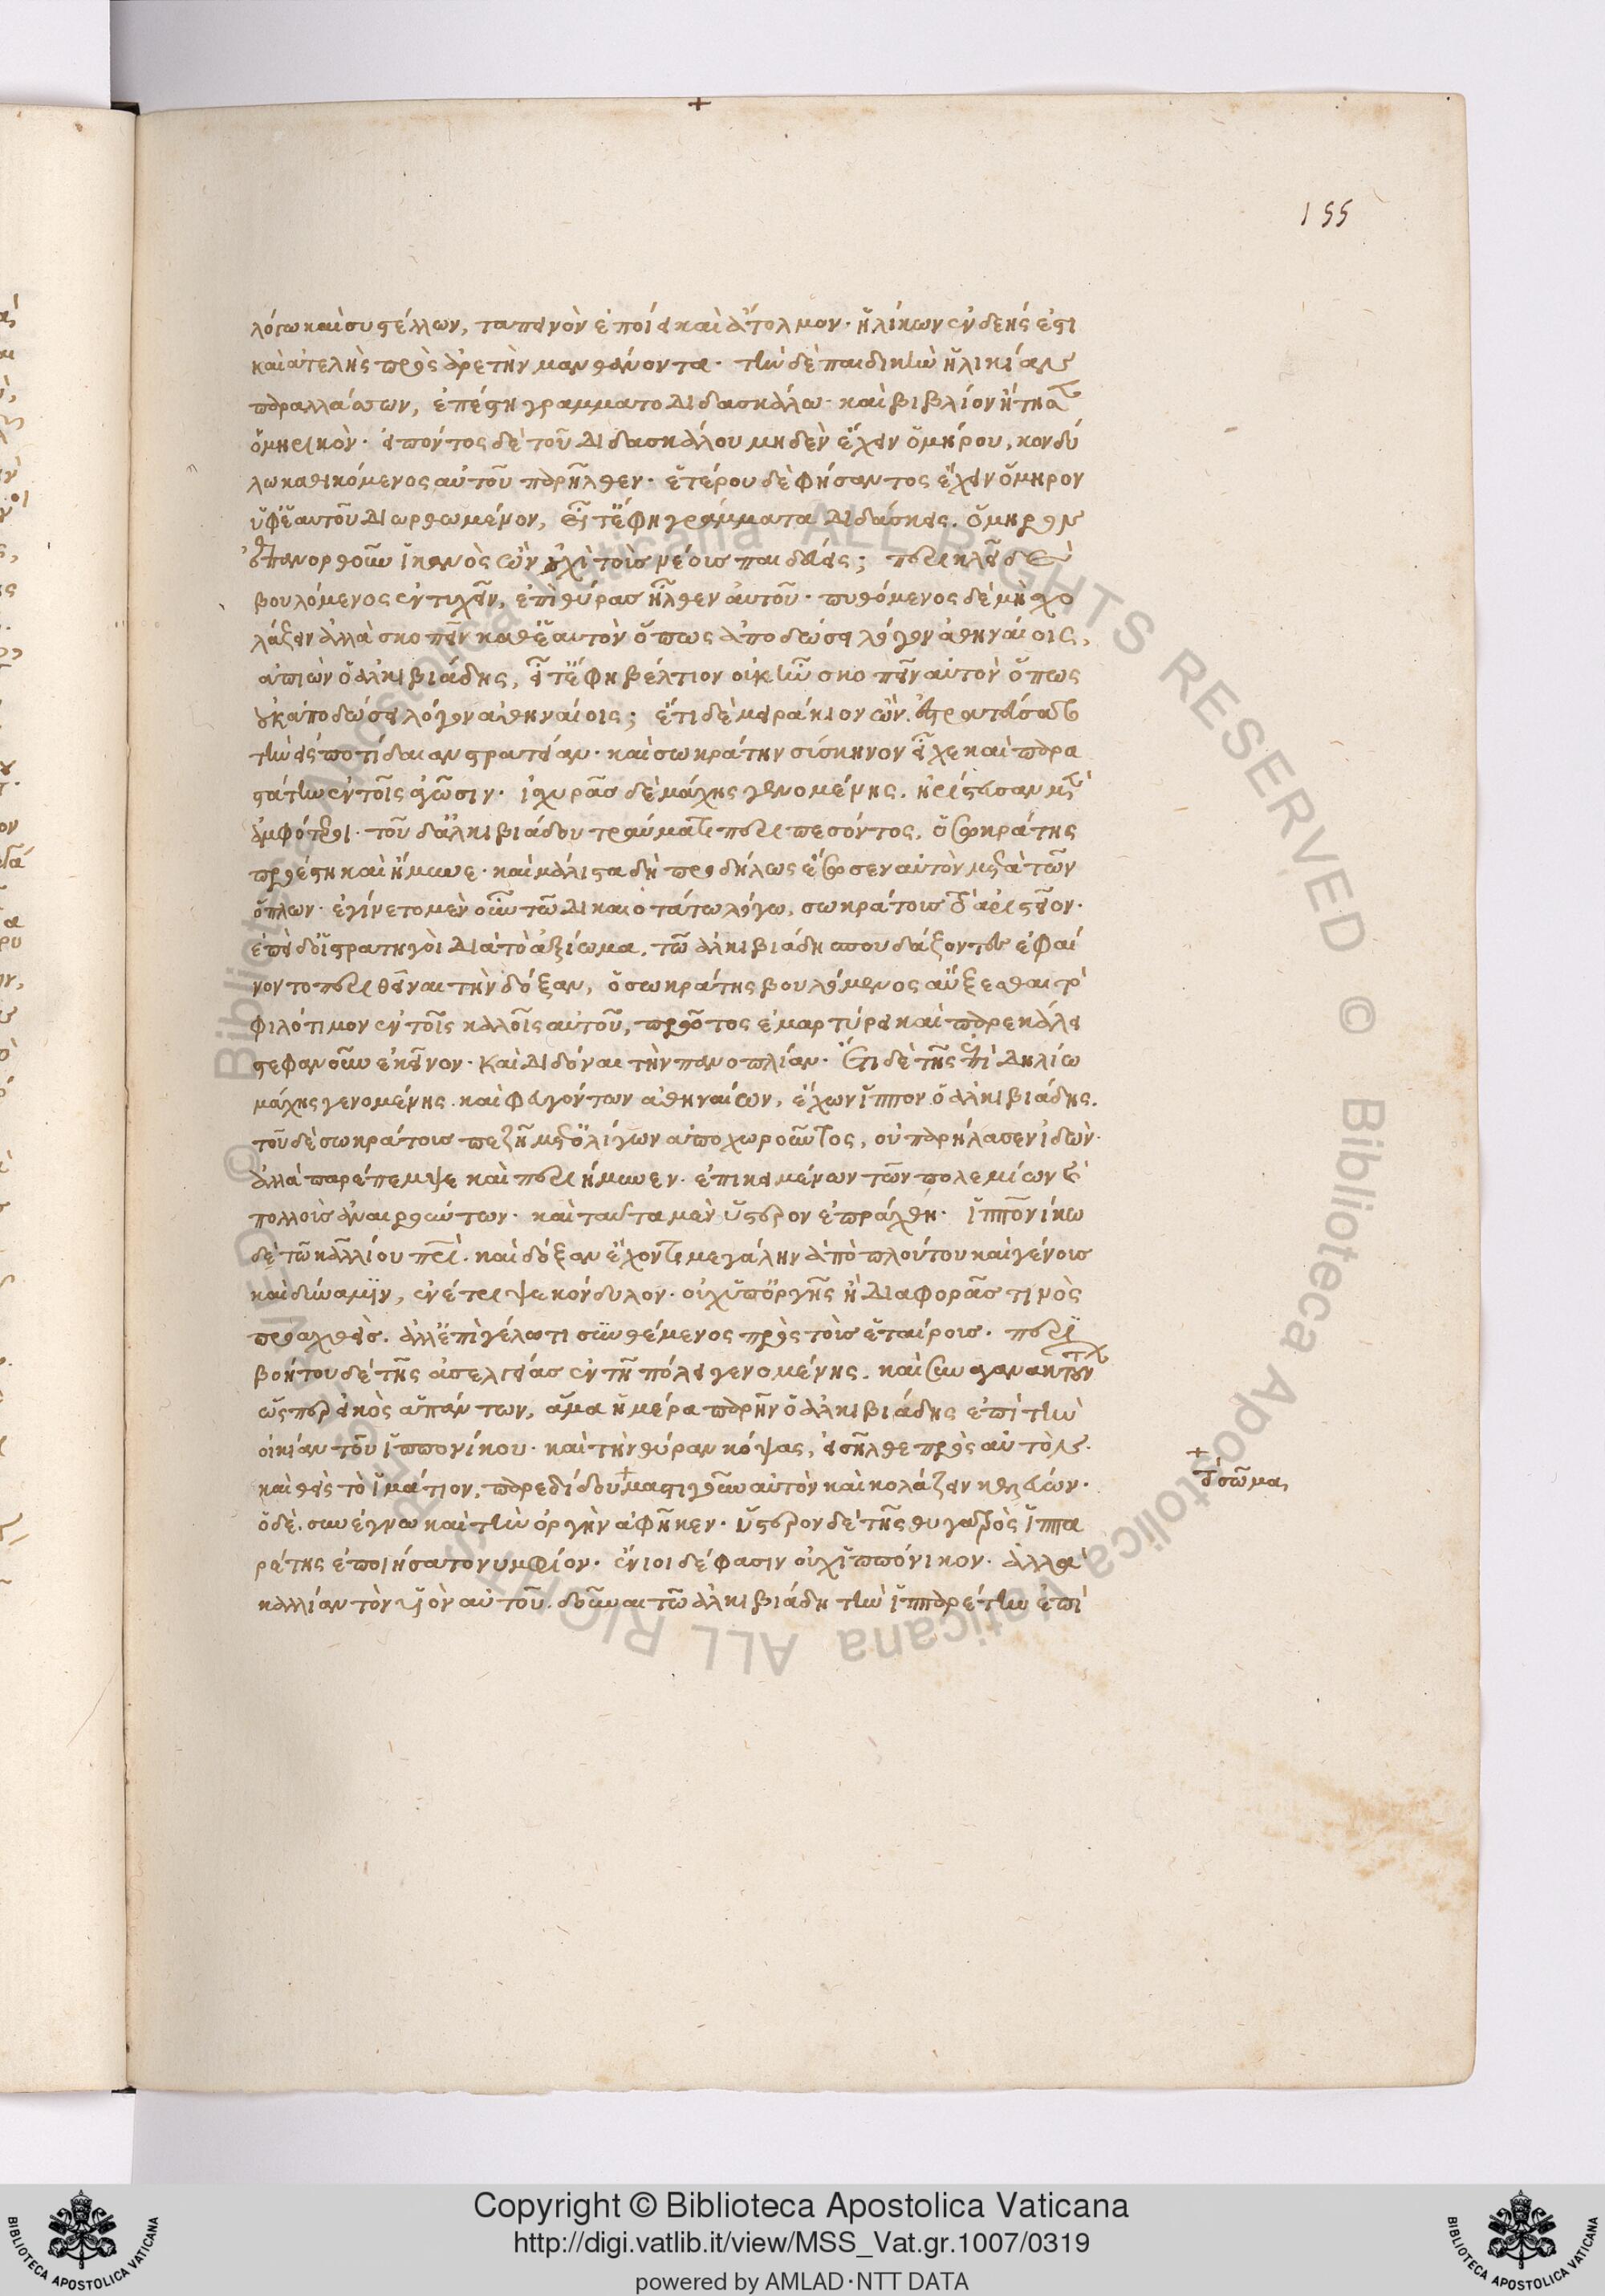 155
λόγω καὶ συστέλλων, ταπεινὸν ἐποίει καὶ ἄτολμον· ἡλίκων ἐνδεής ἐστι
καὶ ἀτελὴς πρὸς ἀρετὴν μανθάνοντα· τὴν δὲ παιδικὴν ἡλικίαν
παραλλάσσων, ἐπέστη γραμματοδιδασκάλω· καὶ βιβλίον ᾔτησεν
ὁμηρικόν· εἰπόντος δὲ τοῦ διδασκάλου μηδὲν ἔχειν ὁμήρου, κονδύ
λω καθικόμενος αὐτοῦ παρῆλθεν· ἑτέρου δὲ φήσαντος ἔχειν ὅμηρον
ὑφ' ἑαυτοῦ διωρθωμένον, εἶτ' ἔφη γράμματα διδάσκεις. ὅμηρον
ἐπανορθοῦν ἱκανὸς ὢν οὐχὶ τοὺς νέους παιδεύεις; περικλεῖ δὲ
βουλόμενος ἐντυχεῖν, ἐπὶ θύρας ἦλθεν αὐτοῦ· πυθόμενος δὲ μὴ σχο
λάζειν ἀλλὰ σκοπεῖν καθ' ἑαυτὸν ὅπως ἀποδώσει λόγον ἀθηναίοις,
ἀπιὼν ὁ ἀλκιβιάδης, εἶτ' ἔφη βέλτιον οὐκ ἦν σκοπεῖν αὐτὸν ὅπως
οὐκ ἀποδώσει λόγον ἀθηναίοις; ἔτι δὲ μειράκιον ὢν. ἐστρατεύσατο
τὴν εἰς ποτίδαιαν στρατείαν· καὶ σωκράτην σύσκηνον εἶχε καὶ παρα
στάτην ἐν τοῖς ἀγῶσιν· ἰσχυρᾶς δὲ μάχης γενομένης. ἠρίστευσαν μὲν
ἀμφότεροι· τοῦ δ' ἀλκιβιάδου τραύματι περιπεσόντος, ὁ σωκράτης
προέστη καὶ ἤμυνε· καὶ μάλιστα δὴ προδήλως ἔσωσεν αὐτὸν μετὰ τῶν
ὅπλων· ἐγίνετο μὲν οὖν τῶ δικαιοτάτω λόγω, σωκράτους τὸ ἀριστεῖον·
ἐπεὶ δ' οἱ στρατηγοὶ διὰ τὸ ἀξίωμα, τῶ ἀλκιβιάδη σπουδάζοντες ἐφαί
νοντο περιθεῖναι τὴν δόξαν, ὁ σωκράτης βουλόμενος αὔξεσθαι τὸ
φιλότιμον ἐν τοῖς καλοῖς αὐτοῦ, πρῶτος ἐμαρτύρει καὶ παρεκάλει
στεφανοῦν ἐκεῖνον· καὶ διδόναι τὴν πανοπλίαν· ἔτι δὲ τῆς ἐπὶ δηλίω
μάχης γενομένης. καὶ φευγόντων ἀθηναίων, ἔχων ἵππον ὁ ἀλκιβιάδης.
τοῦ δὲ σωκράτους πεζῆ μετ' ὀλίγων ἀποχωροῦντος, οὐ παρήλασεν ἰδών·
ἀλλὰ παρέπεμψε καὶ περιήμυνεν· ἐπικειμένων τῶν πολεμίων καὶ
πολλοὺς ἀναιρούντων· καὶ ταῦτα μὲν ὕστερον ἐπράχθη· ἱππονίκω
δὲ τῶ καλλίου πατρὶ. καὶ δόξαν ἔχοντι μεγάλην ἀπὸ πλούτου καὶ γένους
καὶ δύναμιν, ἐνέτριψε κόνδυλον· οὐχ ὑπ' ὀργῆς ἢ διαφορᾶς τινὸς
προαχθεὶς. ἀλλ' ἐπὶ γέλωτι συνθέμενος πρὸς τοὺς ἑταίρους· περι
βοήτου δὲ τῆς ἀσελγείας ἐν τῆ πόλει γενομένης. καὶ συναγανακτούντων
ὥσπερ εἰκὸς ἁπάντων, ἅμα ἡμέρα παρῆν ὁ ἀλκιβιάδης ἐπὶ τὴν
οἰκίαν τοῦ ἱππονίκου· καὶ τὴν θύραν κόψας, εἰσῆλθε πρὸς αὐτὸν·
καὶ θεὶς τὸ ἱμάτιον, παρεδίδου μαστιγοῦν αὐτὸν καὶ κολάζειν κελεύων·
τὸ σῶμα
ὁ δὲ. συνέγνω καὶ τὴν ὀργὴν ἀφῆκεν· ὕστερον δὲ τῆς θυγατρὸς ἱππα
ρέτης ἐποιήσατο νυμφίον· ἔνιοι δέ φασιν οὐχ ἱππόνικον· ἀλλὰ
καλλίαν τὸν υἱὸν αὐτοῦ. δοῦναι τῶ ἀλκιβιάδη τὴν ἱππαρέτην ἐπὶ
Copyright © Biblioteca Apostolica Vaticana
http://digi.vatlib.it/view/MSS_Vat.gr.1007/0319
powered by AMLAD·NTT DATA
BIBLIOTECA APOSTOLICA VATICANA
BIBLIOTECA APOSTOLICA VATICANA
© Biblioteca Apostolica Vaticana ALL RIGHTS RESERVED © Biblioteca Apostolica Vaticana ALL RIGHTS RESERVED